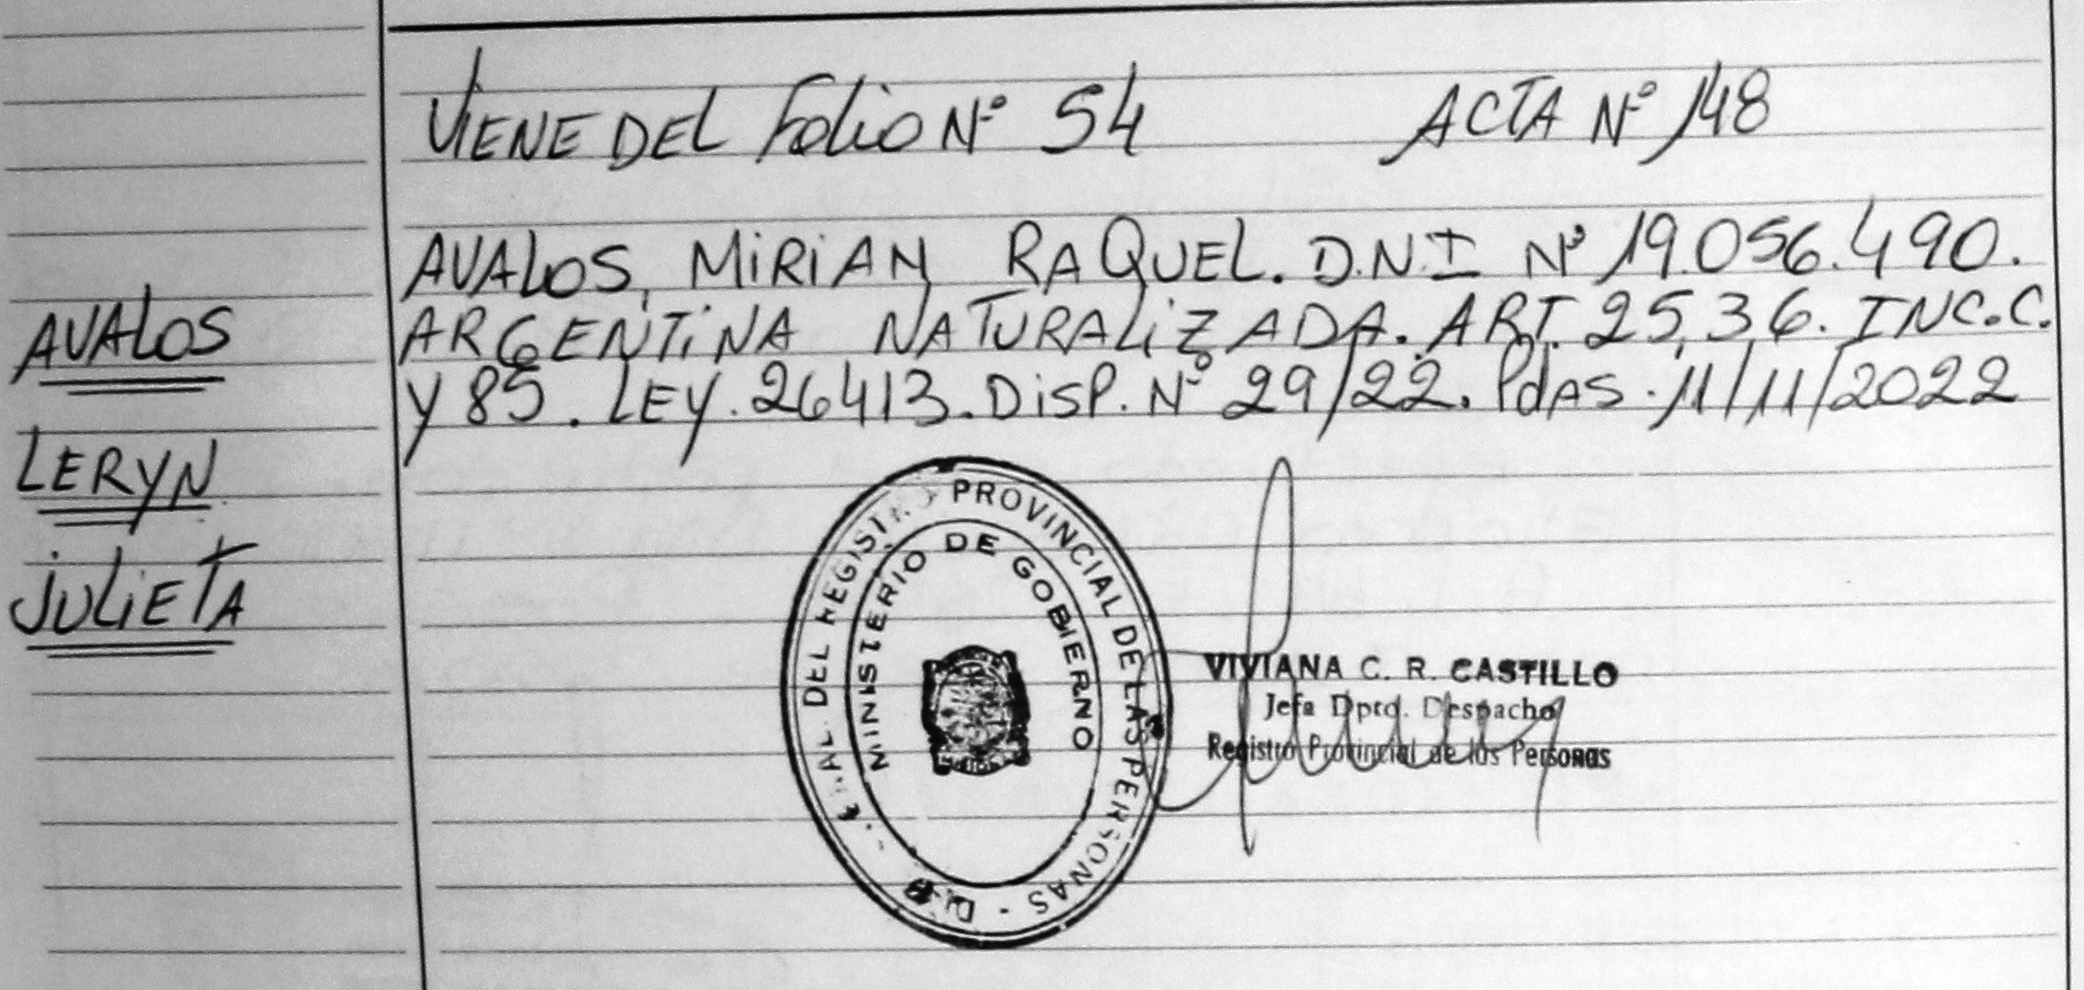 VIENE DEL Folio Nº 54 ACTA Nº 148
AVALOS, MIRIAN RAQUEL. D.N.I Nº 19.056.490.
ARGENTINA NATURALIZADA. ART. 25, 36. INC. C.
Y 85. LEY. 26413. DISP. Nº 29/22. Pdas. 11/11/2022
AVALOS
LERYN
JULIETA
DEL REGISTRO PROVINCIAL DE LAS PERSONAS
MINISTERIO DE GOBIERNO
VIVIANA C. R. CASTILLO
Jefa Dpto. Despacho
Registro Provincial de las Personas